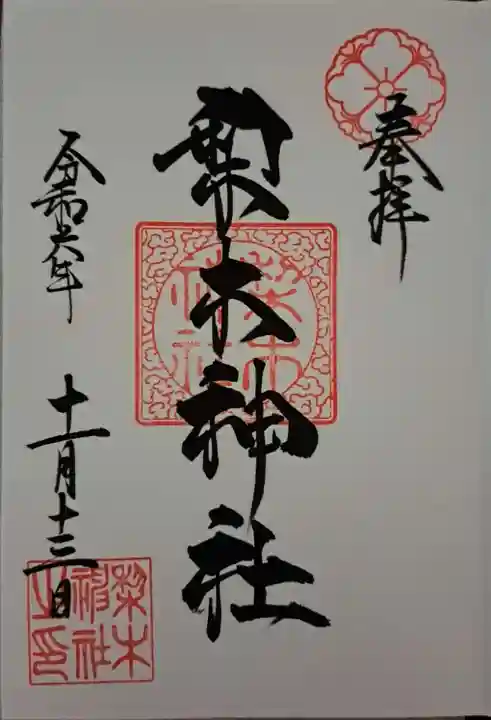 奉拝
梨木神社
梨木
神社
令和六年
十一月十三日
梨木
神社
之印